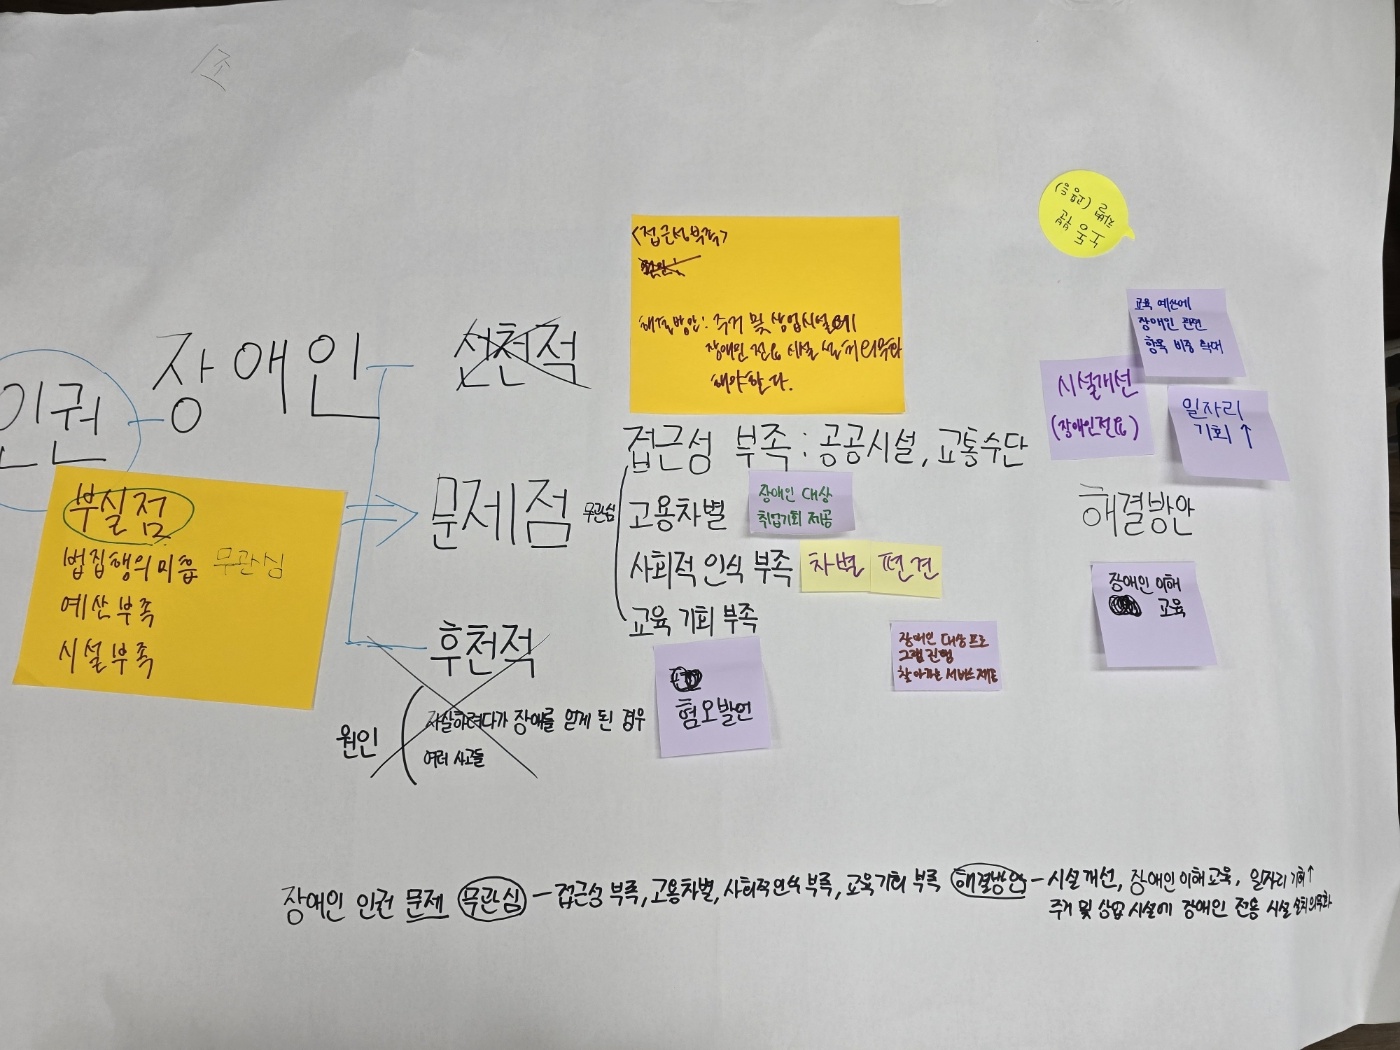 1조
인권
장애인
선천적
문제점
후천적
부실점
법집행의 미흡 무관심
예산 부족
시설 부족
원인
자살하려다가 장애를 얻게 된 경우
여러 사고들
<접근성부족>
해결방안: 주거 및 상업시설에
장애인 전용 시설 설치 의무화
해야한다.
무관심
접근성 부족 : 공공시설, 교통수단
고용차별
장애인 대상
취업기회 제공
사회적 인식 부족
차별 편견
교육 기회 부족
혐오발언
장애인 대상 프로
그램 진행
찾아가는 서비스 제공
교육 예산에
장애인 관련
항목 비중 확대
시설개선
(장애인전용)
일자리
기회 ↑
해결방안
장애인 이해
교육
장애인 인권 문제 무관심 - 접근성 부족, 고용차별, 사회적인식 부족, 교육기회 부족 해결방안 - 시설개선, 장애인이해교육, 일자리 기회↑
주거 및 상업 시설에 장애인 전용 시설 설치 의무화